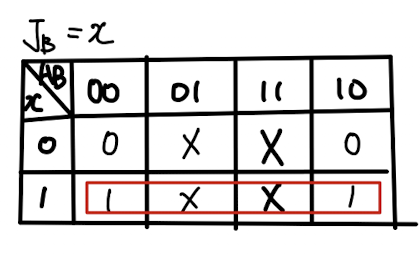 J_B = x
AB
x
00 01 11 10
0 0 X X 0
1 1 X X 1